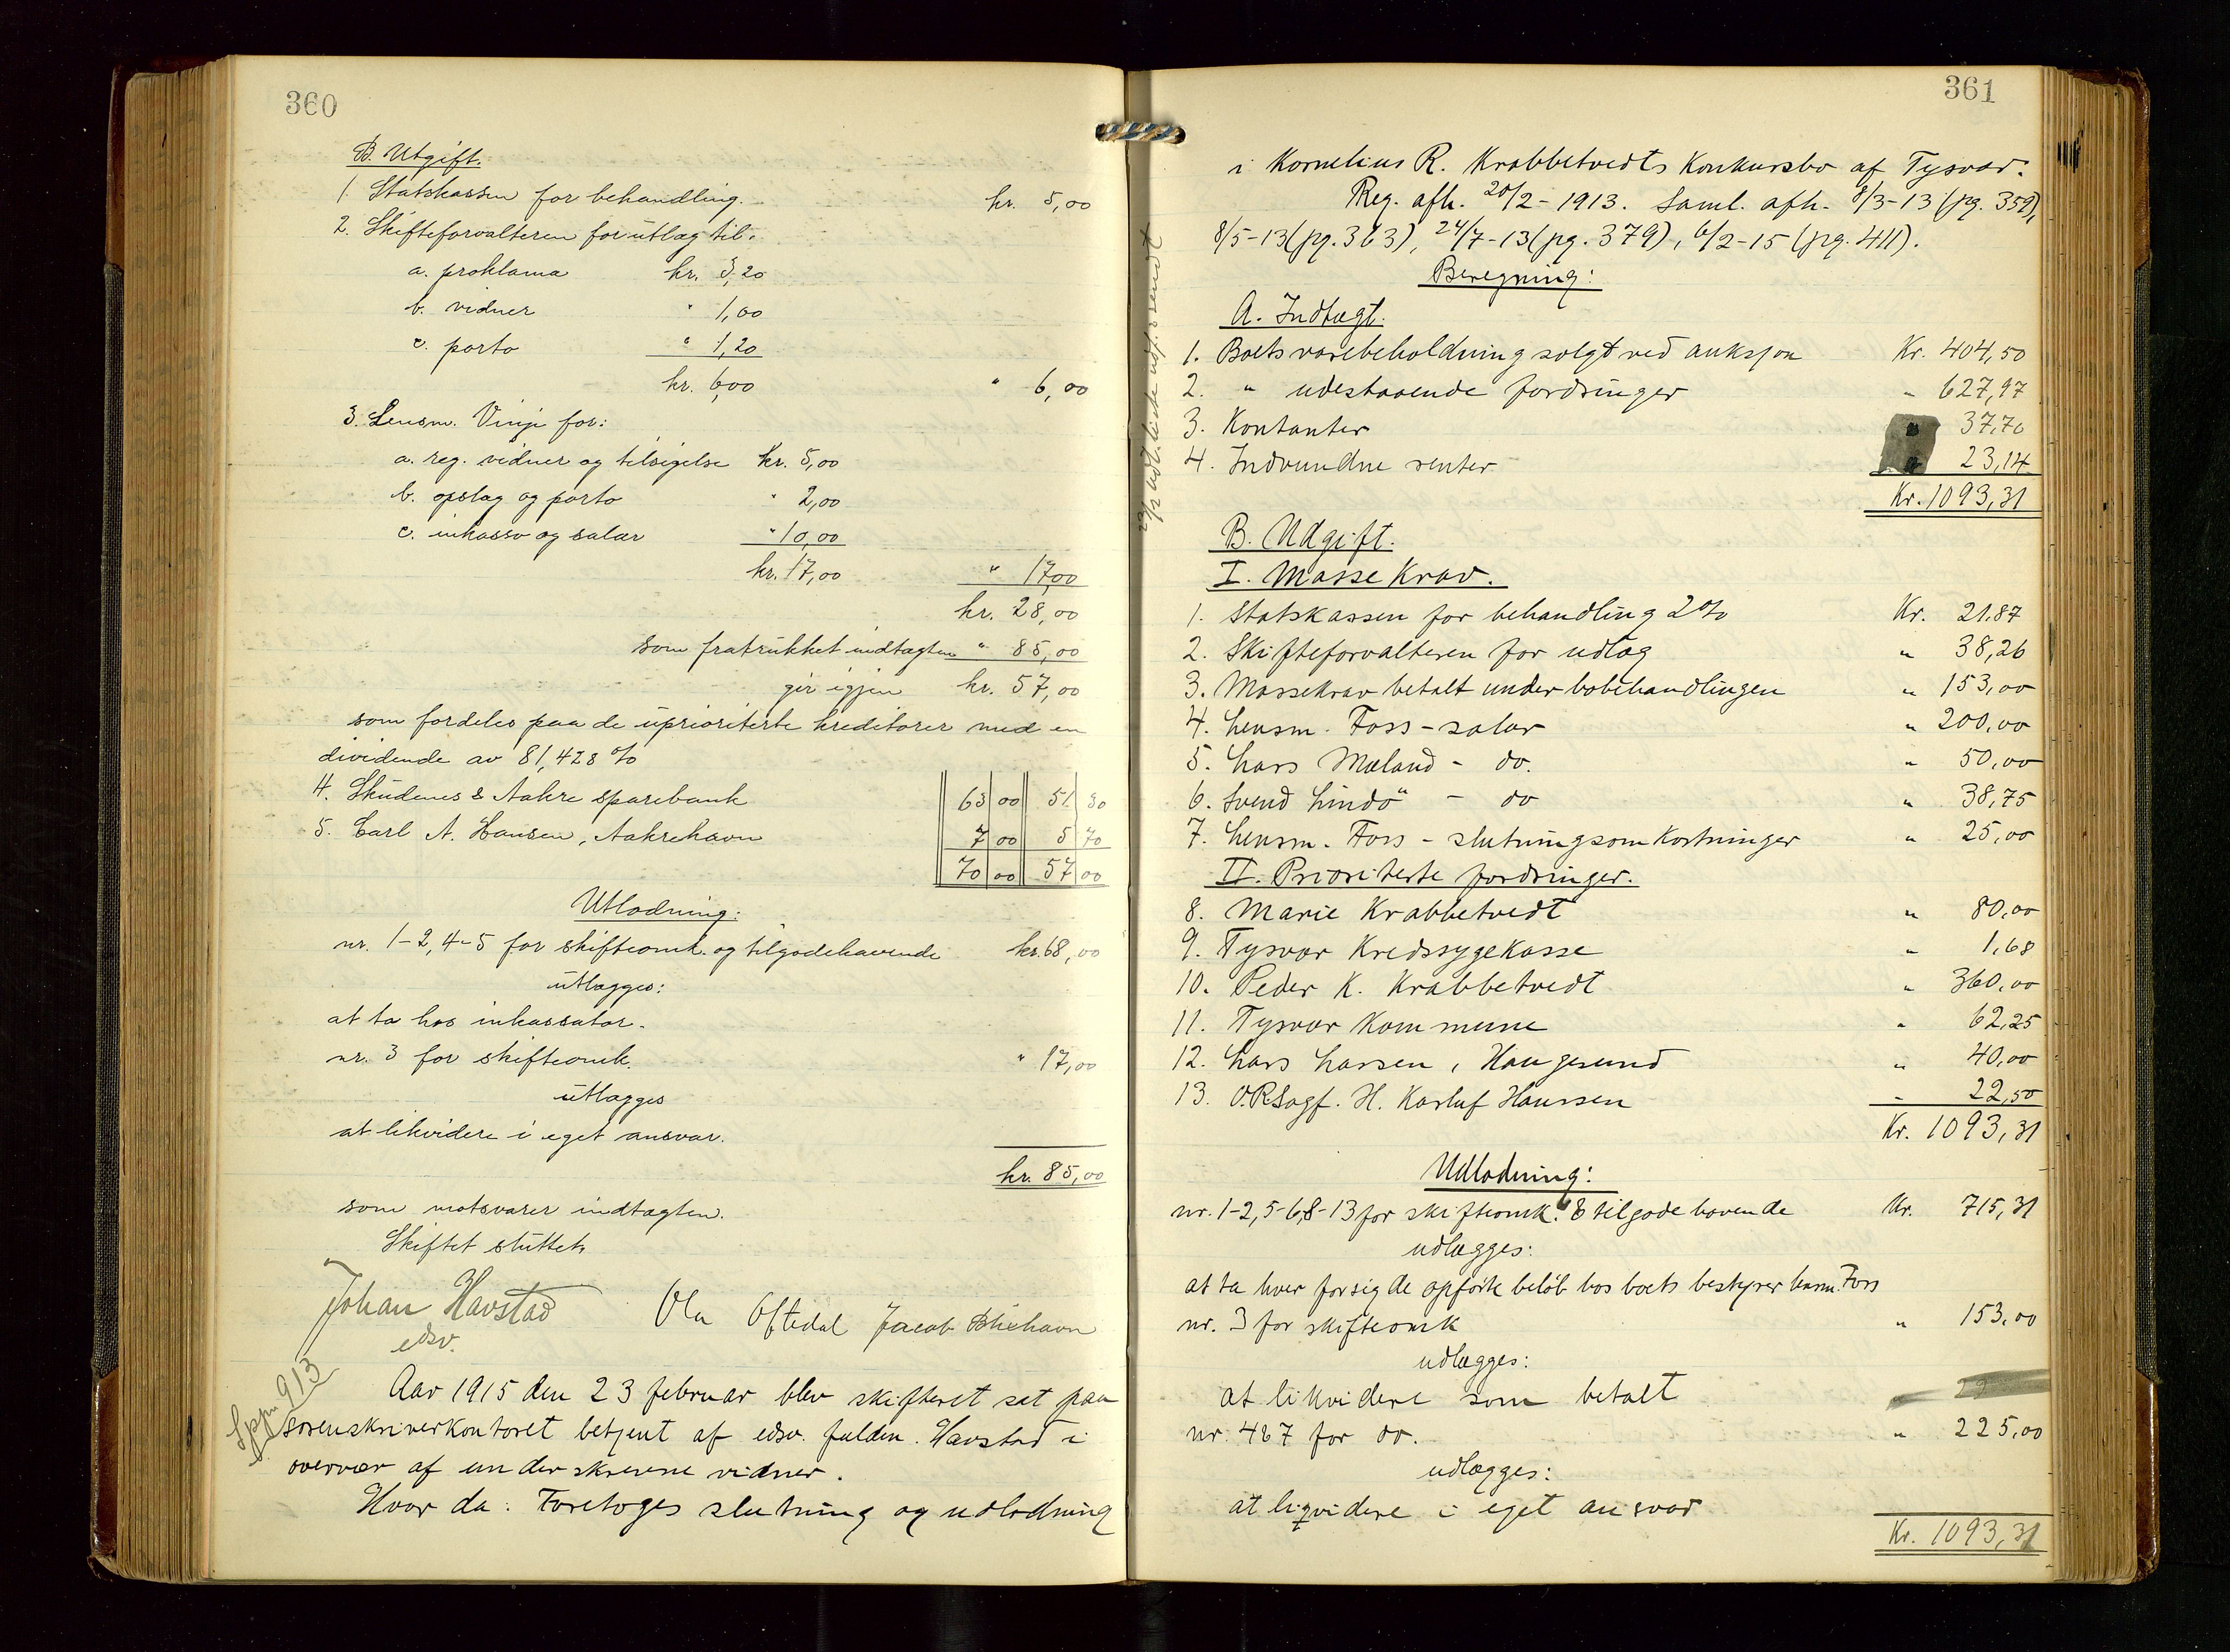 360
B. Utgift.
1. Statskassen for behandling. kr. 5,00
2. Skifteforvalteren for utlæg til:
a. proklama kr. 3,20
b. vidner " 1,00
c. porto " 1,20
kr. 6,00 " 6,00
3. Lensm. Vinje for:
a. reg. vidner og tilsigelse kr. 5,00
b. opslag og porto " 2,00
c. inkasso og salær " 10,00
kr. 17,00 " 17,00
kr. 28,00
som fratrukket indtægten " 85,00
gir igjen kr. 57,00
som fordeles paa de uprioriterte kreditorer med en
dividende av 81,428 %
4. Skudenes & Aakre sparebank 63 00 51 30
5. Carl A. Hansen, Aakrehavn 7 00 5 70
70 00 57 00
Utlodning:
nr. 1-2, 4-5 for skifteomk. og tilgodehavende kr. 68,00
utlægges:
at ta hos inkassator.
nr. 3 for skifteomk. " 17,00
utlægges
at likvidere i eget ansvar.
kr. 85,00
som motsvarer indtægten.
Skiftet sluttet.
Johan Havstad
edsv.
Ola Oftedal Jacob Blixhavn
Sppn 913
Aar 1915 den 23 februar blev skifteret sat paa
sorenskriverkontoret betjent af edsv. fuldm. Havstad i
overvær af underskrevne vidner.
Hvor da: Foretoges slutning og udlodning
361
i Kornelius R. Krabbetvedts Konkursbo af Tysvær.
Reg. afh. 20/2-1913. Saml. afh. 8/3-13 (pg. 359),
8/5-13 (pg. 363), 24/7-13 (pg. 379), 6/2-15 (pg. 411).
Beregning:
A. Indtægt.
1. Boets varebeholdning solgt ved auksjon Kr. 404,50
2. " udestaaende fordringer " 627,97
3. Kontanter " 37,70
4. Indvundne renter " 23,14
Kr. 1093,31
B. Udgift.
I. Massekrav.
1. Statskassen for behandling 2% Kr. 21.87
2. Skifteforvalteren for udlæg " 38,26
3. Massekrav betalt under bobehandlingen " 153,00
4. Lensm. Foss - salær " 200,00
5. Lars Mæland - do. " 50,00
6. Svend Lindö - do " 38,75
7. Lensm. Foss - slutningsomkostninger " 25,00
II. Prioriterte fordringer.
8. Marie Krabbetvedt " 80,00
9. Tysvær Kredssygekasse " 1,68
10. Peder K. Krabbetvedt " 360,00
11. Tysvær Kommune " 62,25
12. Lars Larsen, Haugesund " 40,00
13. O.R.Sagf. H. Karluf Hanssen " 22,50
Kr. 1093,31
Udlodning:
nr. 1-2, 5-6, 8-13 for skifteomk. & tilgodehavende Kr. 715,31
udlægges:
at ta hver for sig de opførte beløb hos boets bestyrer lensm. Foss
nr. 3 for skifteomk " 153,00
udlægges:
at likvidere som betalt
nr. 4 & 7 for do. " 225,00
udlægges:
at liqvidere i eget ansvar
Kr. 1093,31